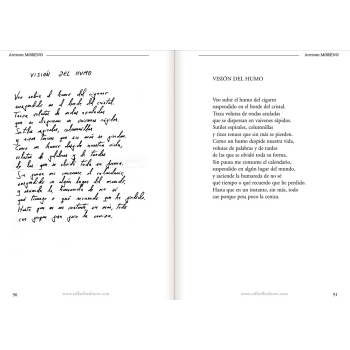 Antonio MORENO
VISIÓN DEL HUMO
Veo subir el humo del cigarro
suspendido en el borde del cristal.
Traza volutas de ondas azuladas
que se dispersan en vaivenes rápidos.
Sutiles espirales, columnillas
y rizos tenues que sin más se pierden.
Como un humo despide nuestra vida,
volutas de palabras y de tardes
de las que se olvidó toda su forma.
Sin pausa me consume el calendario,
suspendido en algún lugar del mundo,
y asciende la humareda de no sé
qué tiempo o qué recuerdo que he perdido.
Hasta que en un instante, sin más, todo
cae porque pesa poco la ceniza.
90
www.raffaellodonno.com
Antonio MORENO
VISIÓN DEL HUMO
Veo subir el humo del cigarro
suspendido en el borde del cristal.
Traza volutas de ondas azuladas
que se dispersan en vaivenes rápidos.
Sutiles espirales, columnillas
y rizos tenues que sin más se pierden.
Como un humo despide nuestra vida,
volutas de palabras y de tardes
de las que se olvidó toda su forma.
Sin pausa me consume el calendario,
suspendido en algún lugar del mundo,
y asciende la humareda de no sé
qué tiempo o qué recuerdo que he perdido.
Hasta que en un instante, sin más, todo
cae porque pesa poco la ceniza.
91